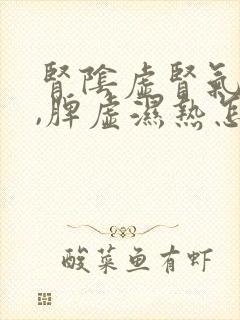 腎陰虛腎氣
,脾虛濕熱怎
酸菜鱼有虾